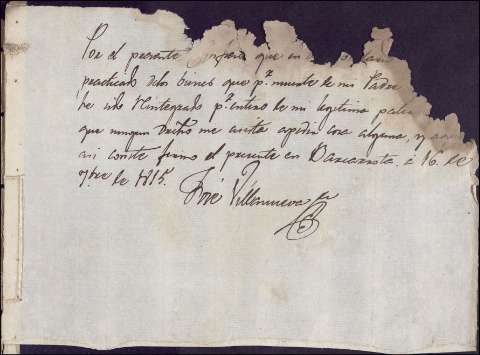 Por el presente Confieso que en
practicado delos bienes que p.r muerte de mi Padre
he sido Reintegrado p.r entero de mi legitima pater
que ningun dro me asista apedir cosa alguna, y
asi conste firmo el presente en Barcarrota à 16. de
7.bre de 1815.
José Villanueva